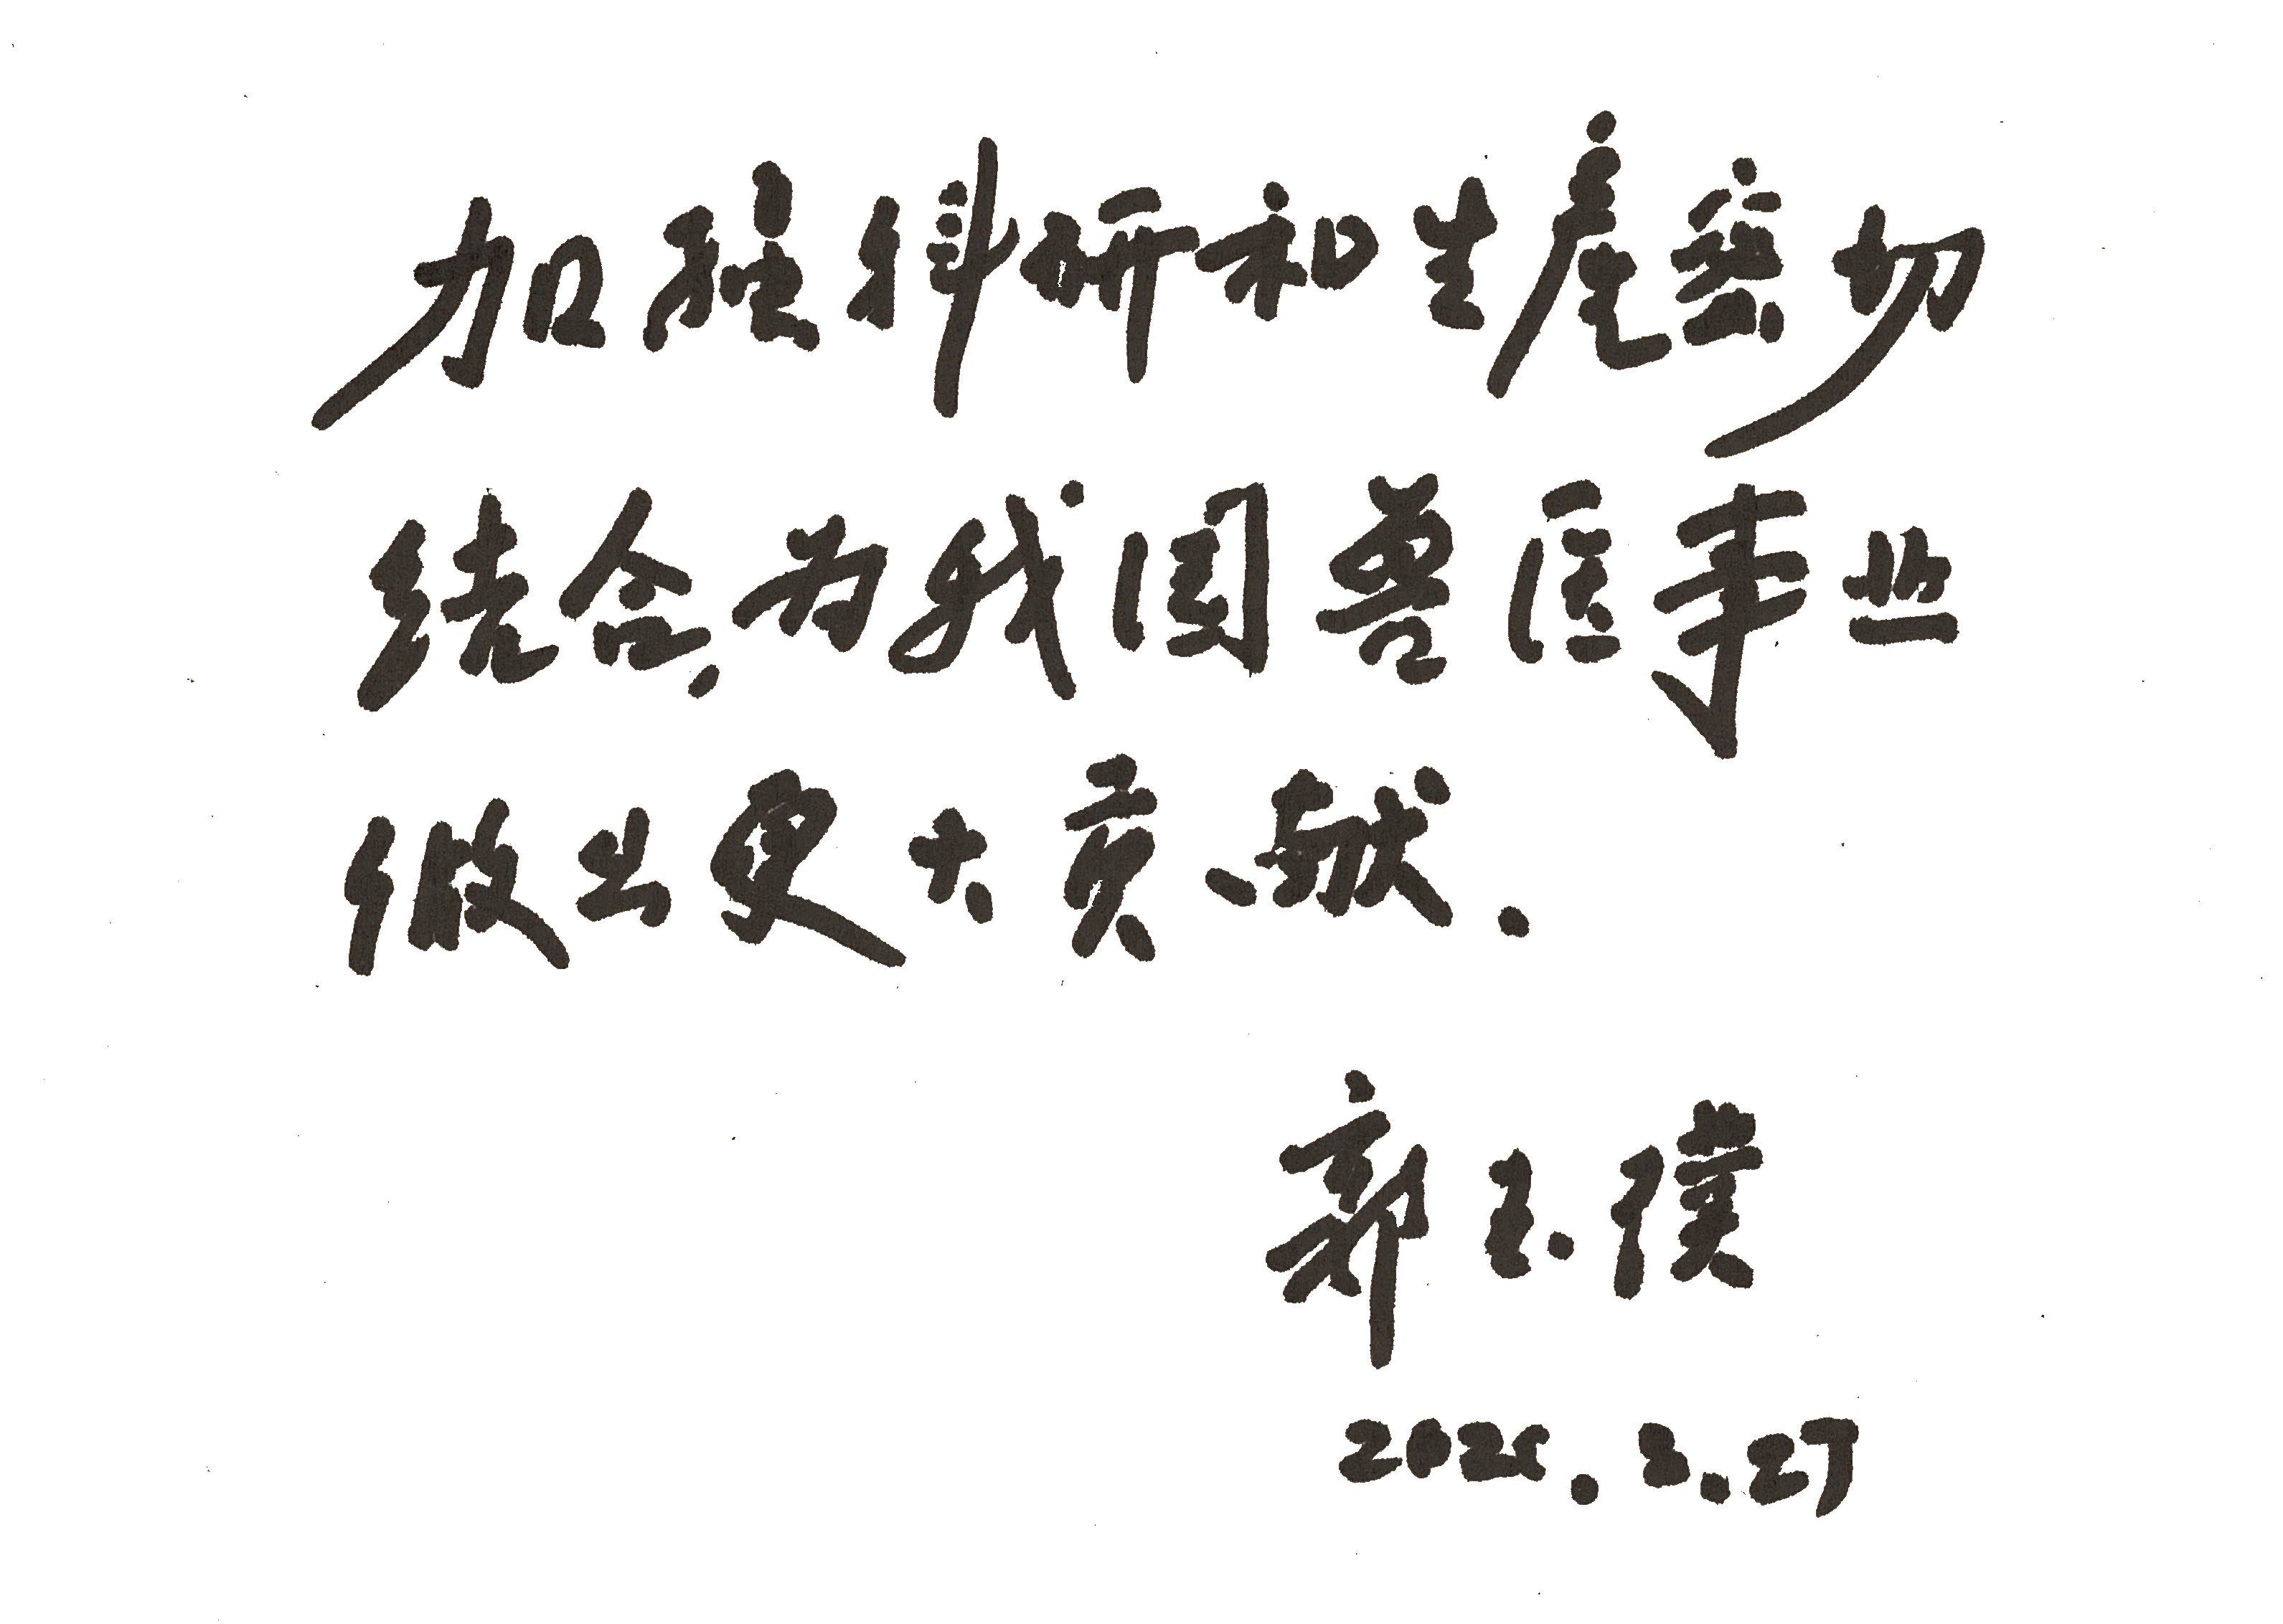 加强科研和生產密切
结合.为我国兽医事业
做出更大贡献.
郭玉璞
2025.3.27